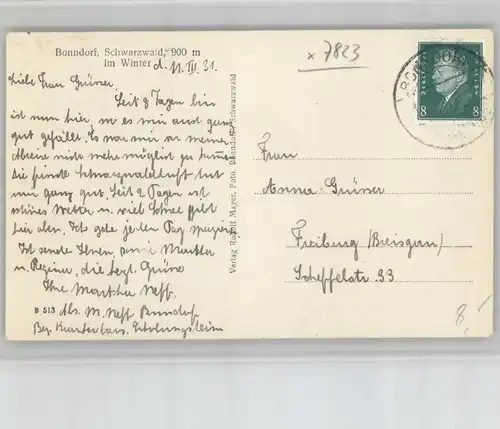 Bonndorf, Schwarzwald, 900 m
im Winter d. 11. III. 31.
x 7823
Liebe Frau Grüner.
Seit 8 Tagen bin
ich nun hier, wo es mir auch ganz
gut gefällt. Es war mir vor meiner
Abreise nicht mehr möglich zu kommen.
Die Schwarzwaldluft tut
mir ganz gut. Seit 2 Tagen ist
schönes Wetter u. viel Schnee gibt
hier oben. Ich gehe jeden Tag spazieren
Ich sende Ihnen, Martha
u. Regine, die herzl. Grüße
Ihre Martha Neff.
B 513 Abs. M. Neff Bonndorf
Bez. Krankenhaus. Erholungsheim
Verlag Rudolf Mayer, Foto, Bonndorf Schwarzwald
BONNDORF
Deutsches Reich
8 8
Frau
Anna Grüner
Freiburg (Breisgau)
Scheffelstr. 33
8,-